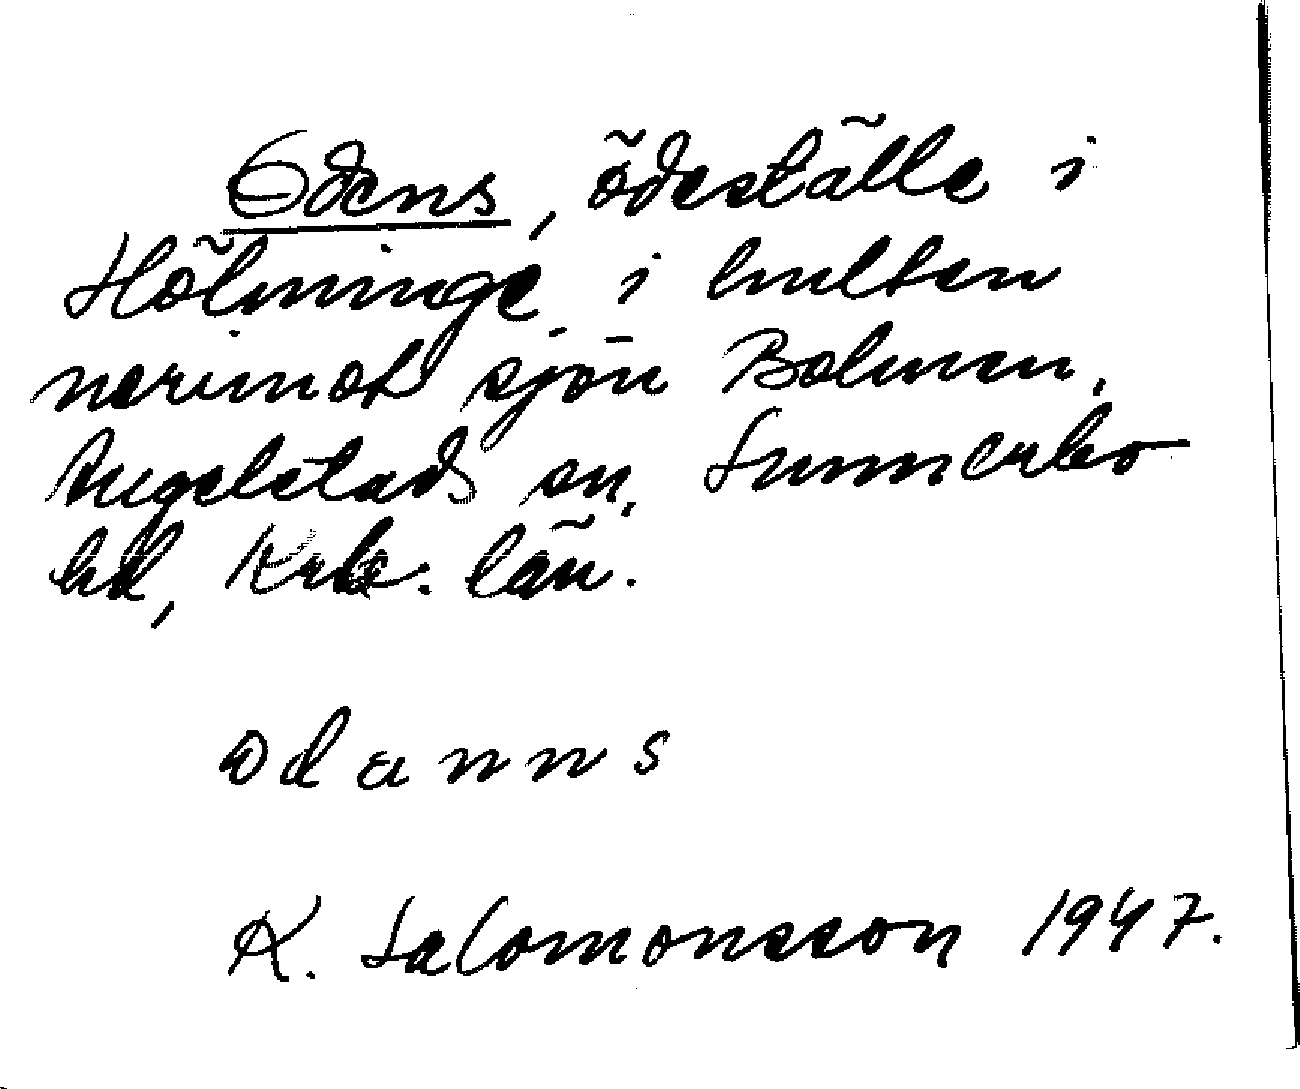 Odens, ödeställe i
Hölminge i hulten
nerimot sjön Bolmen,
Angelstads sn, Sunnerbo
hd, Krb. län.
o d a n n s
K. Salomonsson 1947.